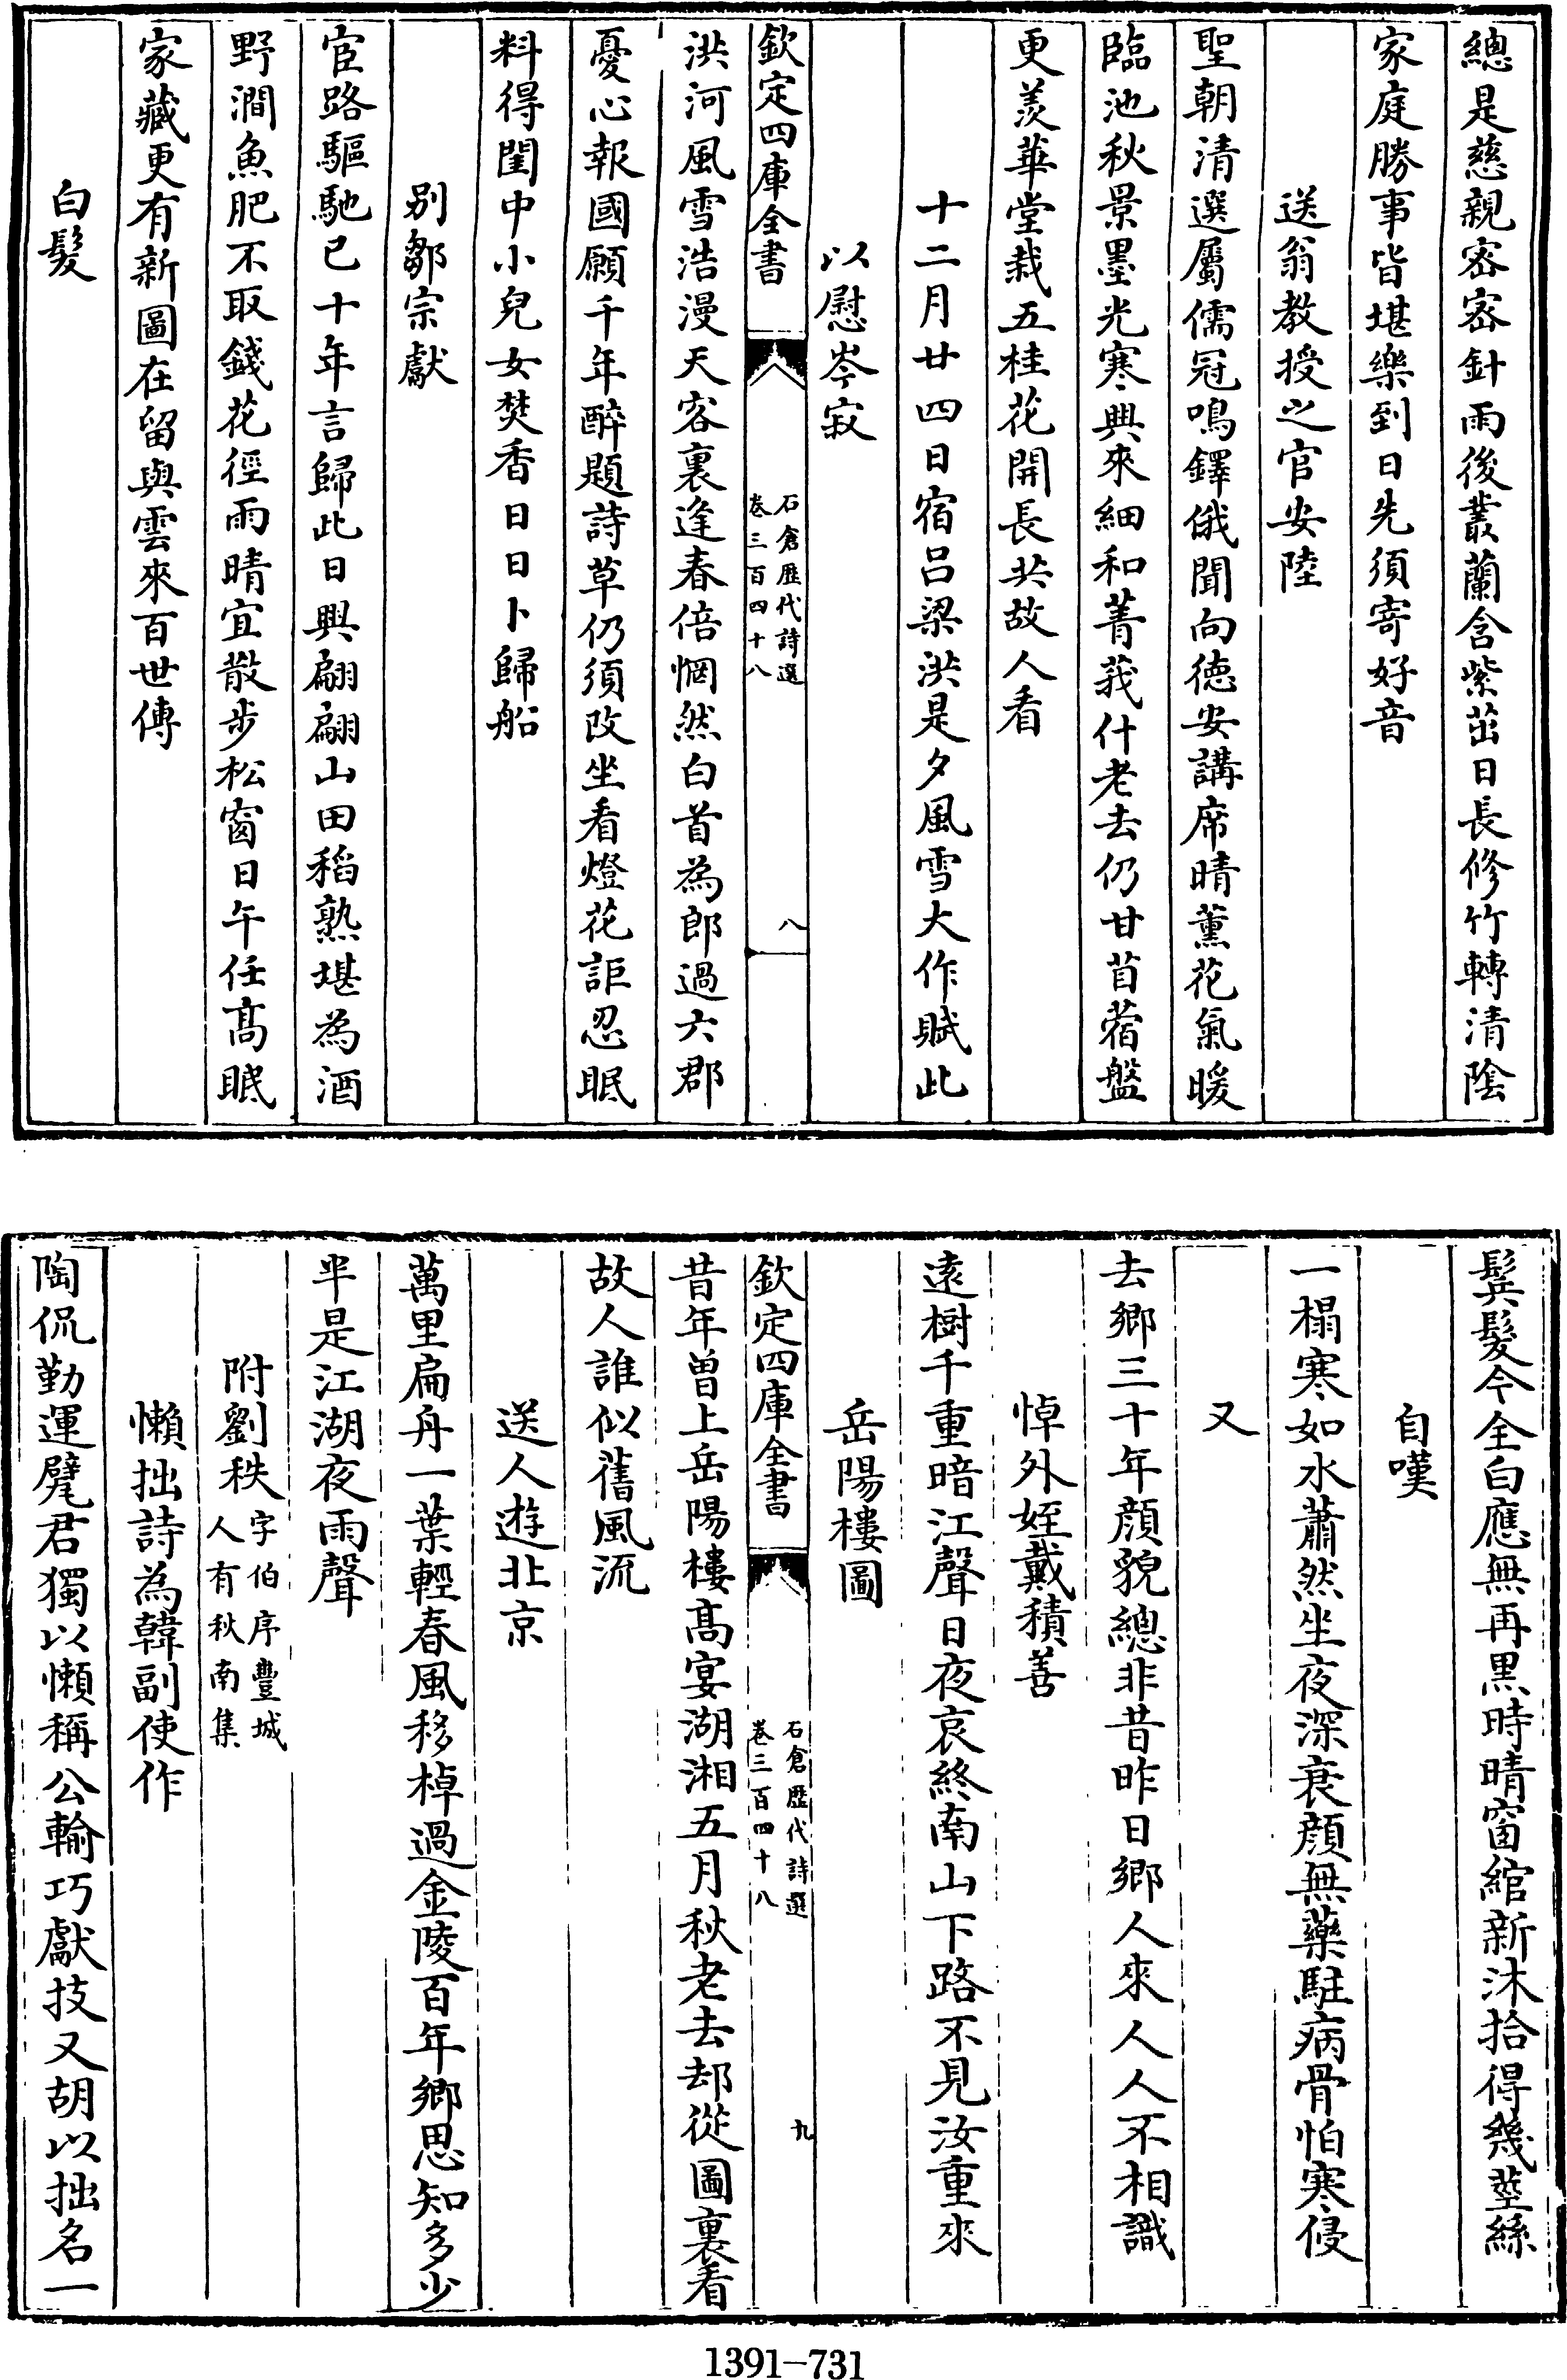 總是慈親密密針雨後叢蘭含紫茁日長修竹轉清陰
家庭勝事皆堪樂到日先須寄好音
送翁教授之官安陸
聖朝清選屬儒冠鳴鐸俄聞向德安講席晴薰花氣暖
臨池秋景墨光寒興來細和菁莪什老去仍甘苜蓿盤
更羨華堂栽五桂花開長共故人看
十二月廿四日宿呂梁洪是夕風雪大作賦此
以慰岑寂
欽定四庫全書
石倉歷代詩選
卷三百四十八
八
洪河風雪浩漫天客裏逢春倍惘然白首為郎過六郡
憂心報國願千年醉題詩草仍須改坐看燈花詎忍眠
料得閨中小兒女焚香日日卜歸船
別鄒宗獻
宦路驅馳已十年言歸此日興翩翩山田稻熟堪為酒
野澗魚肥不取錢花徑雨晴宜散步松窗日午任髙眠
家藏更有新圖在留與雲來百世傳
白髮
鬂髮今全白應無再黒時晴窗綰新沐拾得幾莖絲
自嘆
一榻寒如水蕭然坐夜深衰顔無藥駐病骨怕寒侵
又
去鄉三十年顔貌總非昔昨日鄉人來人人不相識
悼外姪戴積善
遠樹千重暗江聲日夜哀終南山下路不見汝重來
岳陽樓圖
欽定四庫全書
石倉歷代詩選
卷三百四十八
九
昔年曽上岳陽樓髙宴湖湘五月秋老去却從圖裏看
故人誰似舊風流
送人遊北京
萬里扁舟一葉輕春風移棹過金陵百年鄉思知多少
半是江湖夜雨聲
附劉秩字伯序豐城
人有秋南集
懶拙詩為韓副使作
陶侃勤運甓君獨以懶稱公輸巧獻技又胡以拙名一
1391—731